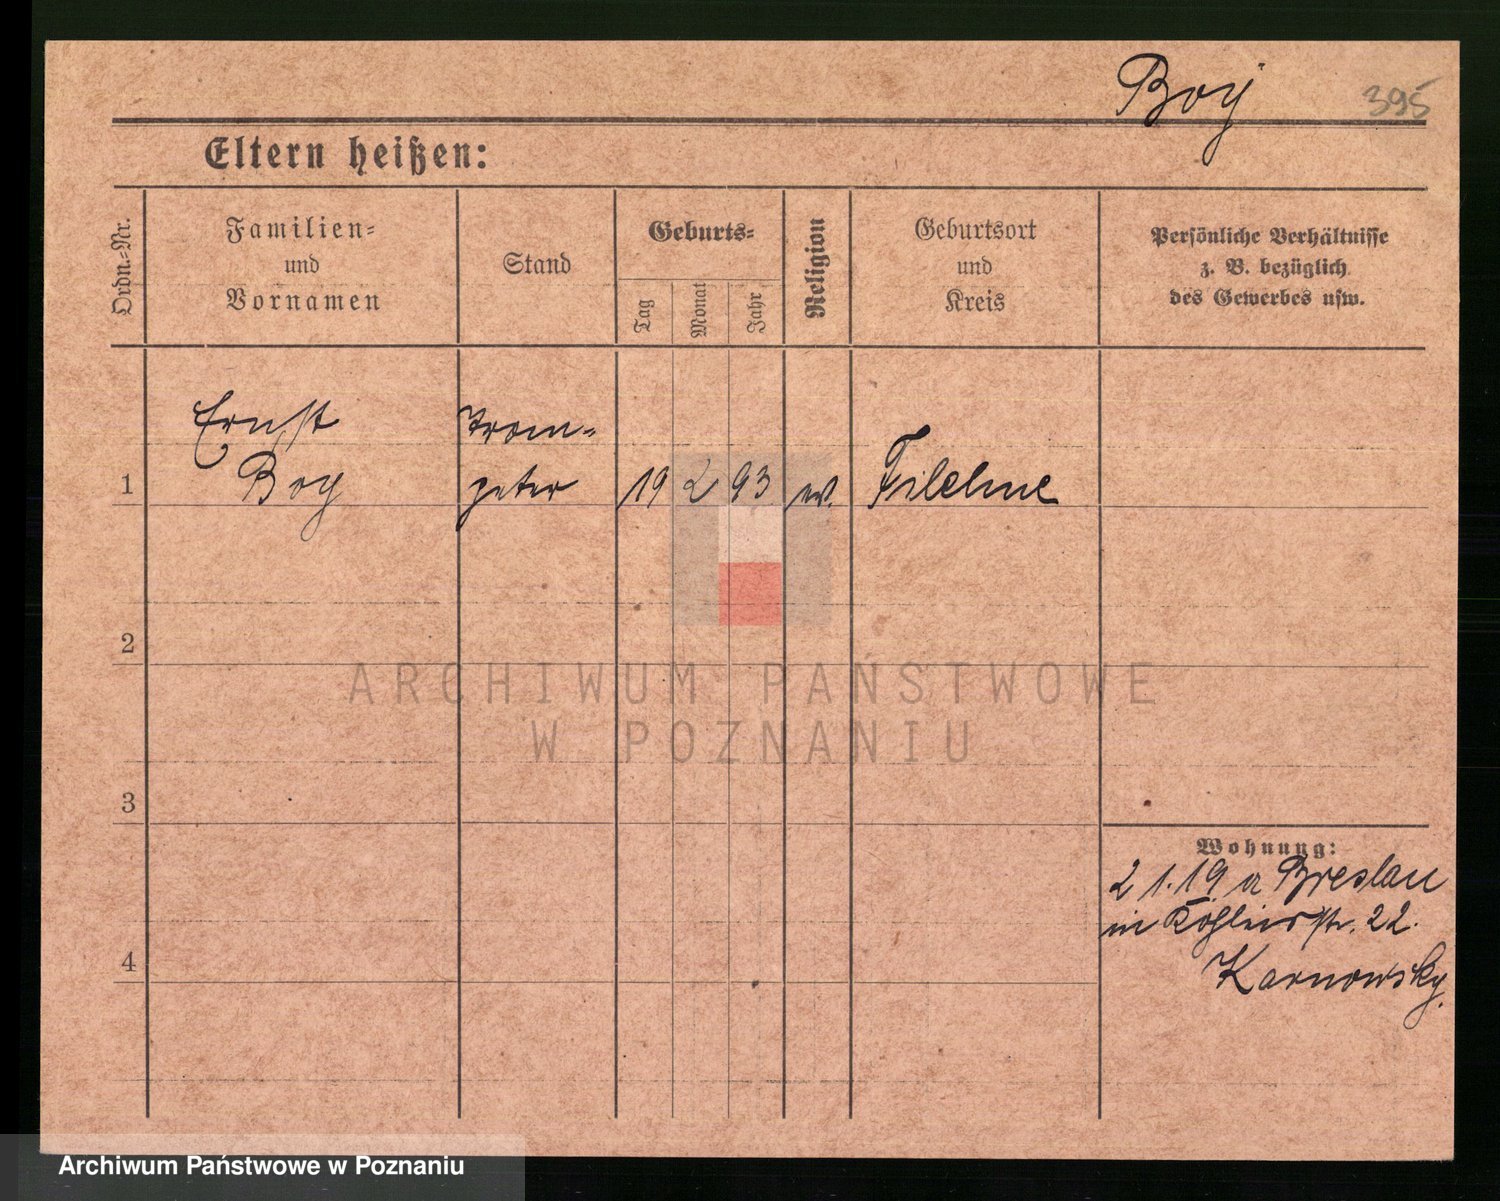 Boy 395
Eltern heißen:
Ordn.-Nr.
Familien-
und
Vornamen
Stand
Geburts-
Tag
Monat
Jahr
Religion
Geburtsort
und
Kreis
Persönliche Verhältnisse
z. B. bezüglich
des Gewerbes usw.
Ernst Trom-
1 Boy peter 19 2 93 ev. Filehne
2
ARCHIWUM PAŃSTWOWE
W POZNANIU
3
Wohnung:
2 1. 19 a Breslau
in str. 22.
4
Karnowsky.
Archiwum Państwowe w Poznaniu